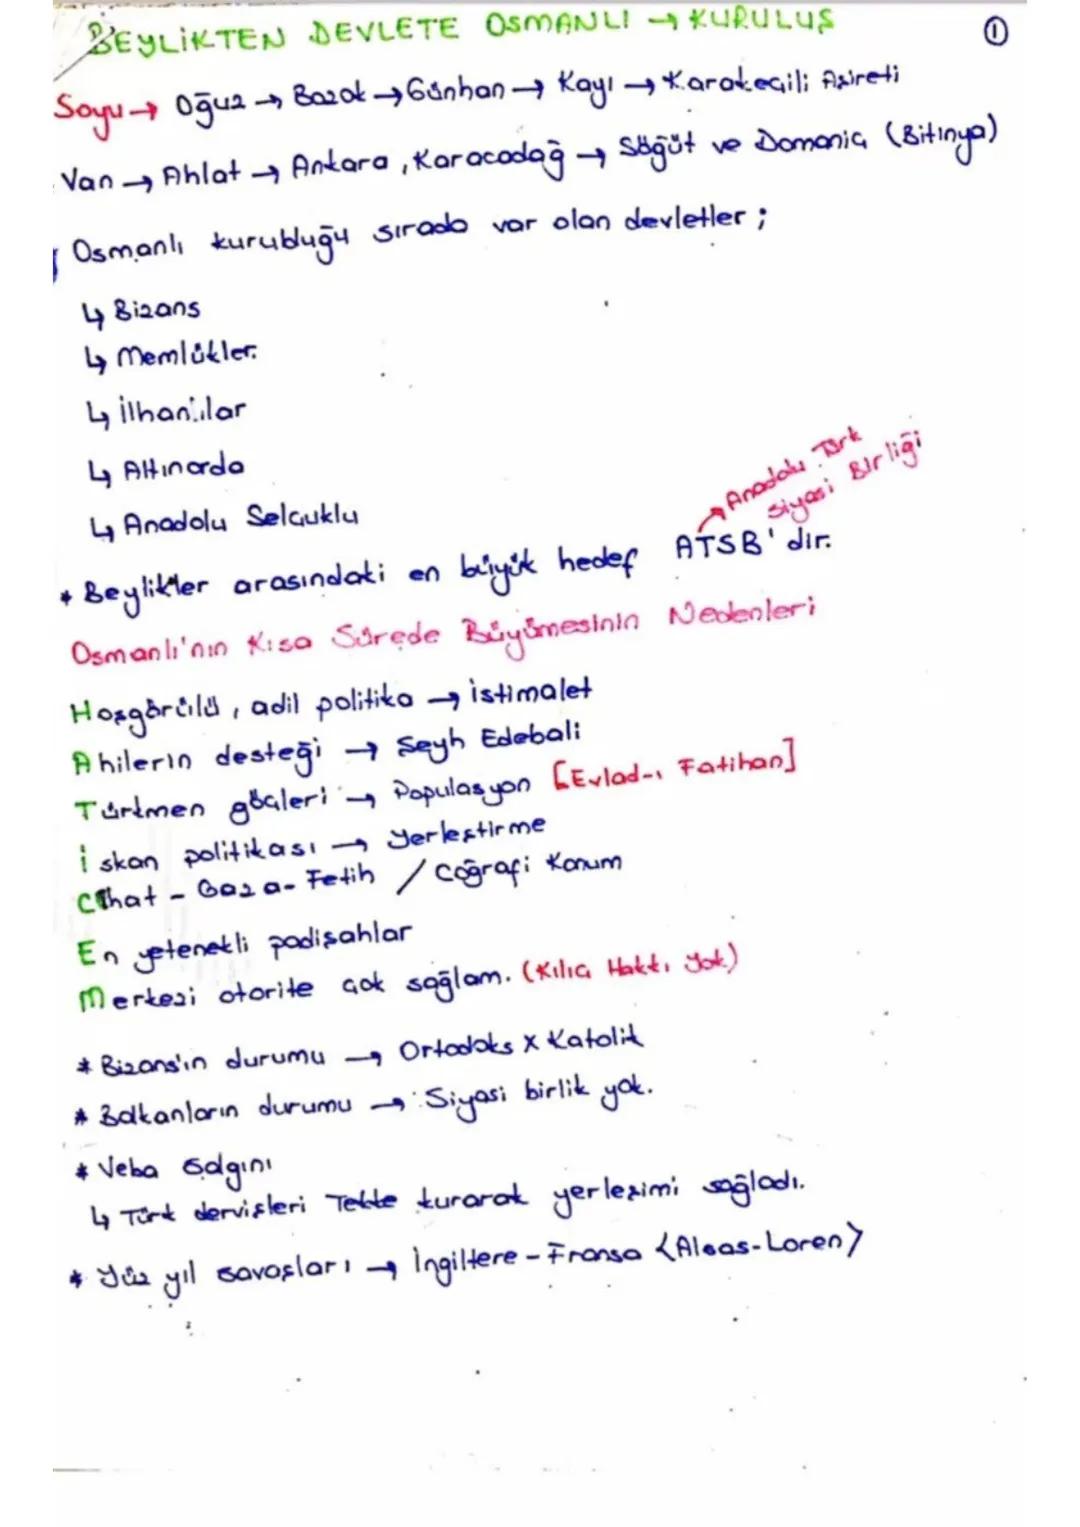 BEYLİKTEN DEVLETE OSMANLI → KURULUŞ ①
Soyu → Oğuz → Bozok → Günhan → Kayı → Karakeçili Aşireti
Van → Ahlat → Ankara, Karacadağ → Söğüt ve Domaniç (Bitinya)
Osmanlı kurulduğu sırada var olan devletler ;
↳ Bizans
↳ Memlükler.
↳ İlhanlılar
↳ Altınorda
↳ Anadolu Selçuklu
→ Anadolu Türk Siyasi Birliği
* Beylikler arasındaki en büyük hedef ATSB' dır.
Osmanlı'nın Kısa Sürede Büyümesinin Nedenleri
Hoşgörülü, adil politika → istimalet
Ahilerin desteği → Şeyh Edebali
Türkmen göçleri → Populasyon [Evlad-ı Fatihan]
İskan politikası → Yerleştirme
Cihat - Gaza - Fetih / Coğrafi Konum
En yetenekli padişahlar
Merkezi otorite çok sağlam. (Kılıç Hakkı Yok)
* Bizans'ın durumu → Ortodoks X Katolik
* Balkanların durumu → Siyasi birlik yok.
* Veba salgını
↳ Türk dervişleri Tekke kurarak yerleşimi sağladı.
* Yüz yıl savaşları → İngiltere - Fransa <Alsas-Loren>